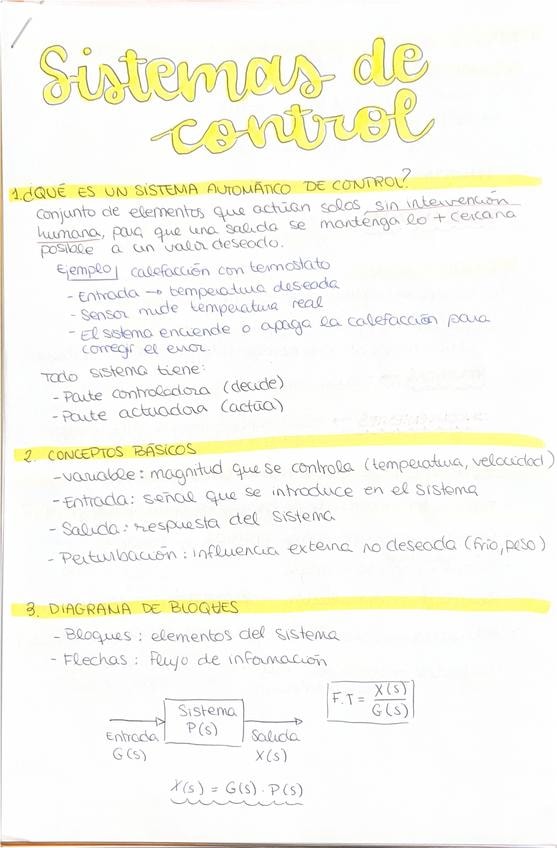 Sistemas de
control
1.¿QUÉ ES UN SISTEMA AUTOMÁTICO DE CONTROL?
conjunto de elementos que actúan solos, sin intervención
humana, para que una salida se mantenga lo + cercana
posible a un valor deseado.
Ejemplo| calefacción con termostato
- Entrada → temperatura deseada
- Sensor mide temperatura real
- El sistema enciende o apaga la calefacción para
corregir el error.
Todo sistema tiene:
- Parte controladora (decide)
- Parte actuadora (actúa)
2. CONCEPTOS BÁSICOS
- Variable: magnitud que se controla (temperatura, velocidad)
- Entrada: señal que se introduce en el sistema
- Salida: respuesta del sistema
- Perturbación: influencia externa no deseada (frío, peso)
3. DIAGRAMA DE BLOQUES
- Bloques: elementos del sistema
- Flechas: flujo de información
F.T = X(s) / G(s)
Sistema
P(s)
Entrada
G(s)
Salida
X(s)
X(s) = G(s) · P(s)